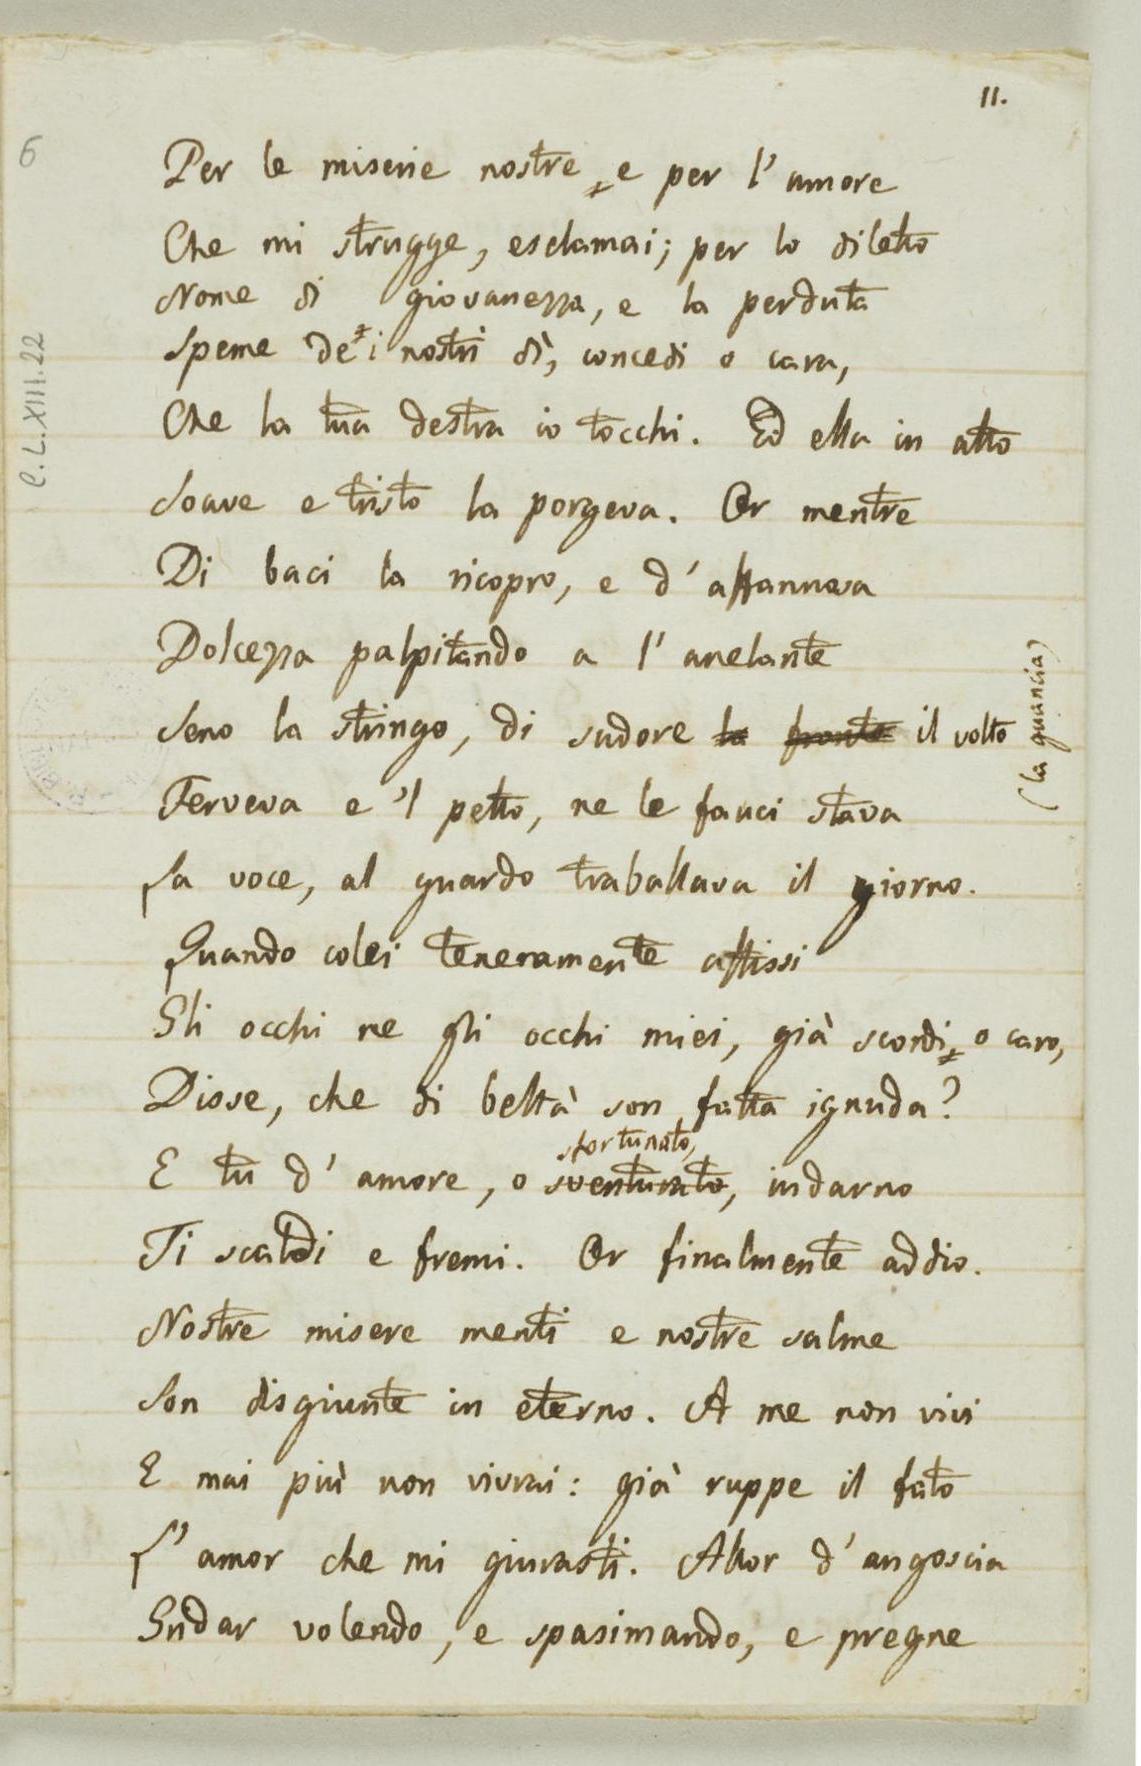 11.
6
Per le miserie nostre, e per l'amore
Che mi strugge, esclamai; per lo diletto
Nome di giovanezza, e la perduta
Speme de i nostri dì, concedi o cara,
Che la tua destra io tocchi. Ed ella in atto
Soave e tristo la porgeva. Or mentre
Di baci la ricopro, e d'affannosa
Dolcezza palpitando a l'anelante
Seno la stringo, di sudore la fronte il volto
(la guancia)
Ferveva e 'l petto, ne le fauci stava
La voce, al guardo traballava il giorno.
Quando colei teneramente affissi
Gli occhi ne gli occhi miei, già scordi, o caro,
Disse, che di beltà son fatta ignuda?
sfortunato,
E tu d'amore, o sventurato, indarno
Ti scaldi e fremi. Or finalmente addio.
Nostre misere menti e nostre salme
Son disgiunte in eterno. A me non vivi
E mai più non vivrai: già ruppe il fato
L'amor che mi giurasti. Allor d'angoscia
Gridar volendo, e spasimando, e pregne
C.L.XIII.22